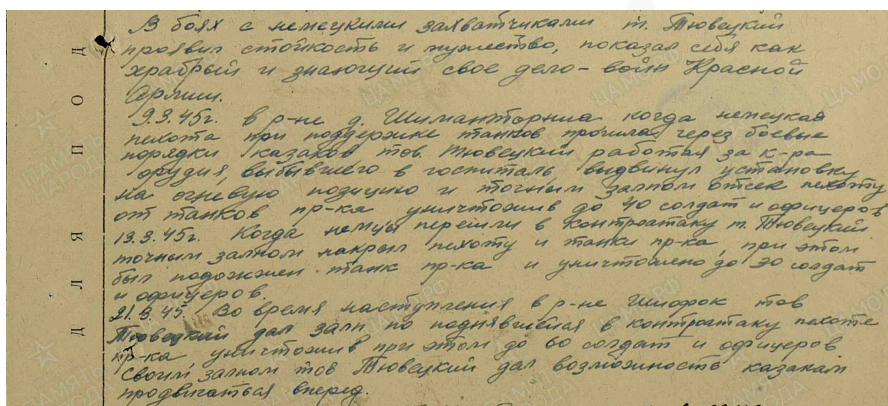 В боях с немецкими захватчиками т. Тювецкий
проявил стойкость и мужество, показал себя как
храбрый и знающий свое дело - воин Красной
Армии.
9.3.45г. в р-не д. Шиманторниа когда немецкая
пехота при поддержке танков прошла через боевые
порядки казаков тов. Тювецкий работая за к-ра
орудия, выбывшего в госпиталь, выдвинул установку
на огневую позицию и точным залпом отсек пехоту
от танков пр-ка уничтожив до 40 солдат и офицеров
13.3.45г. Когда немцы перешли в контратаку т. Тювецкий
точным залпом накрыл пехоту и танки пр-ка, при этом
был подожжен танк пр-ка и уничтожено до 30 солдат
и офицеров.
21.3.45. Во время наступления в р-не Шиофок тов
Тювецкий дал залп по поднявшейся в контратаку пехоте
пр-ка уничтожив при этом до 60 солдат и офицеров
своим залпом тов Тювецкий дал возможность казакам
продвигаться вперед.
ДЛЯ ПОД